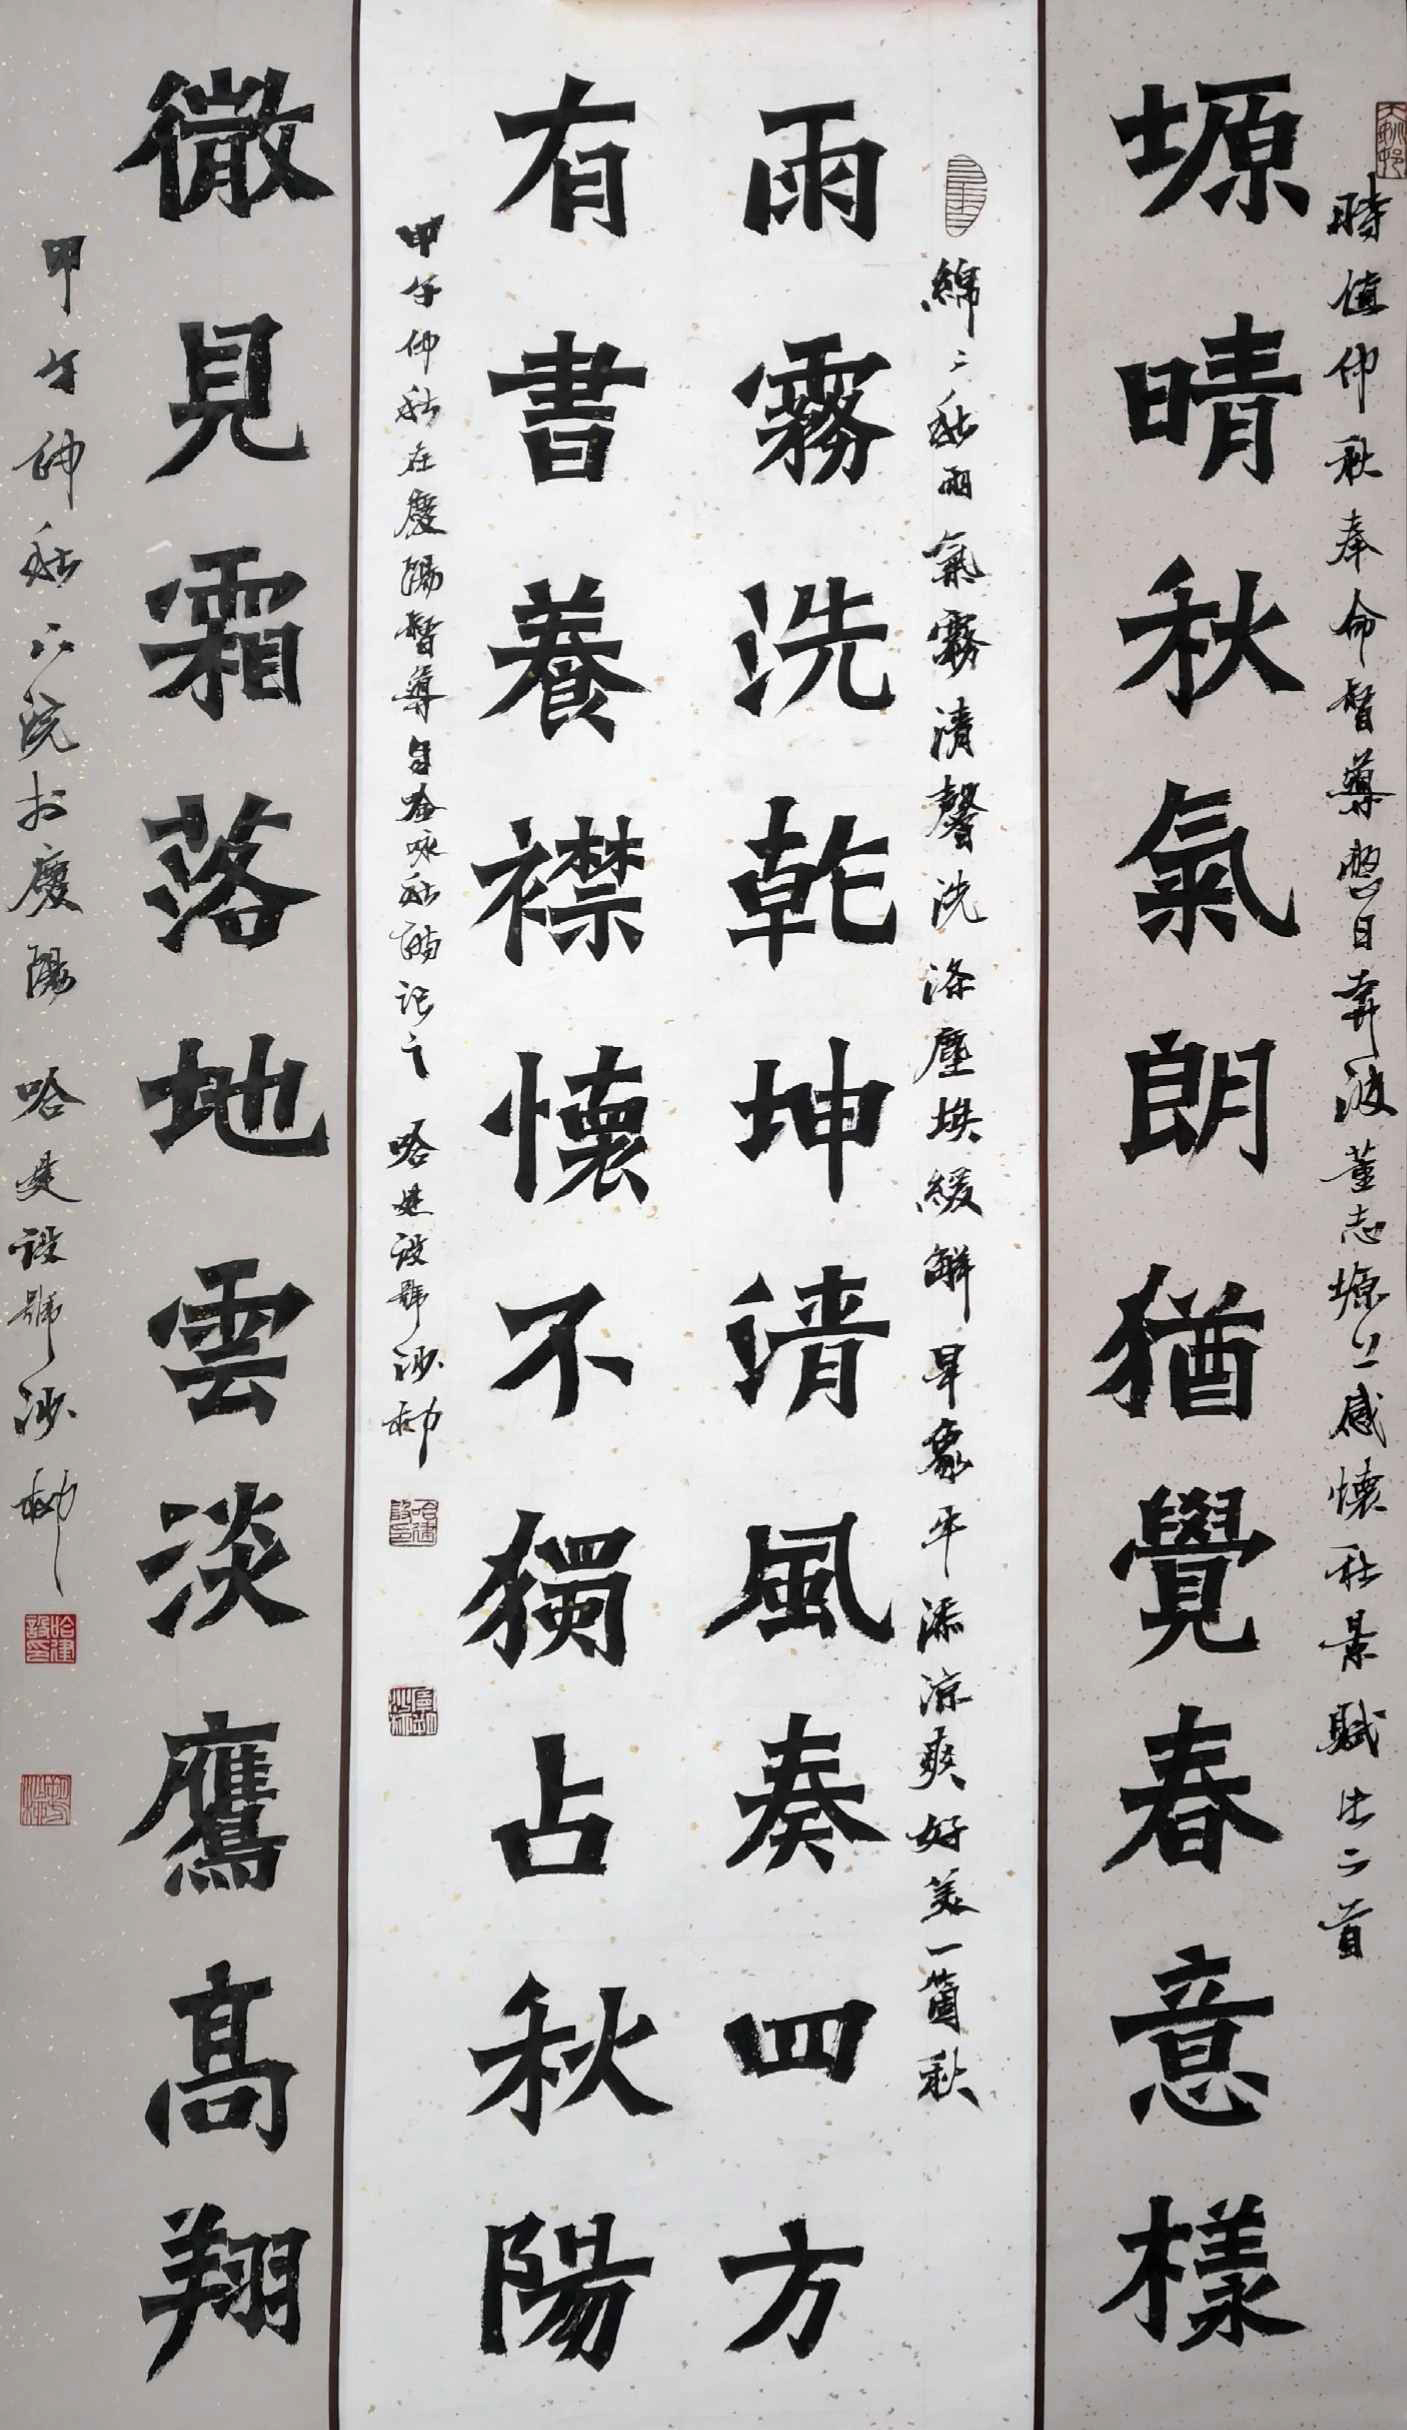 時值仲秋奉命督導整日奔波董志塬上感懷秋景賦此二首
塬晴秋氣朗猶覺春意樣
綿綿秋雨氣霧清馨洗滌塵埃緩解旱象平添涼爽好美一箇秋
雨霧洗乾坤清風奏四方
有書養襟懷不獨占秋陽
甲午仲秋在慶陽督導自吟咏秋兩記之 哈建設號沙柳
微見霜落地雲淡鷹高翔
甲午仲秋下浣於慶陽 哈建設號沙柳
哈建設印
哈建設印